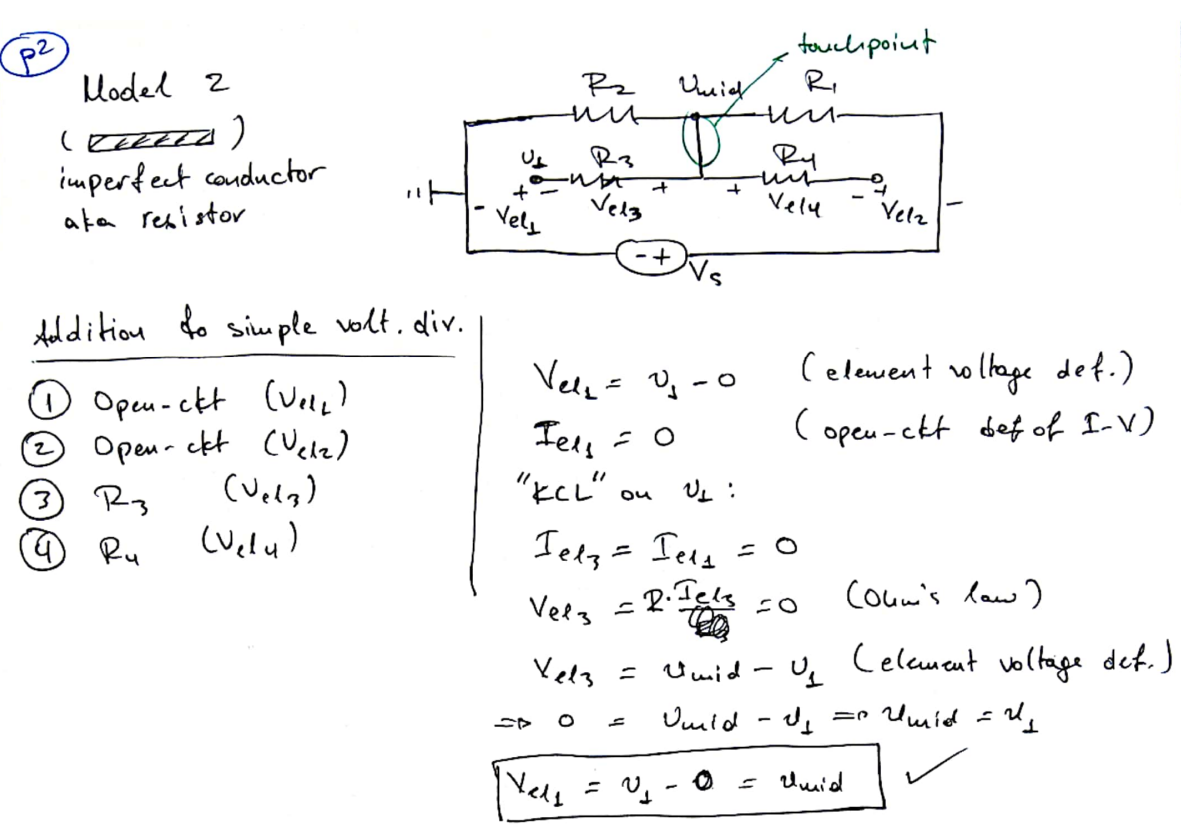 P2
touchpoint
Model 2
R2 Umid R1
( )
imperfect conductor
aka resistor
U1 R3 R4
+ - + + - +
- Vel1 Vel3 Vel4 Vel2 -
- +
Vs
Addition to simple volt. div.
① Open-ckt (Vel1)
② Open-ckt (Vel2)
③ R3 (Vel3)
④ R4 (Vel4)
Vel1 = U1 - 0 (element voltage def.)
Iel1 = 0 (open-ckt def of I-V)
"KCL" on U1 :
Iel3 = Iel1 = 0
Vel3 = R·Iel3 = 0 (Ohm's law)
Vel3 = Umid - U1 (element voltage def.)
=> 0 = Umid - U1 => Umid = U1
Vel1 = U1 - 0 = Umid ✓